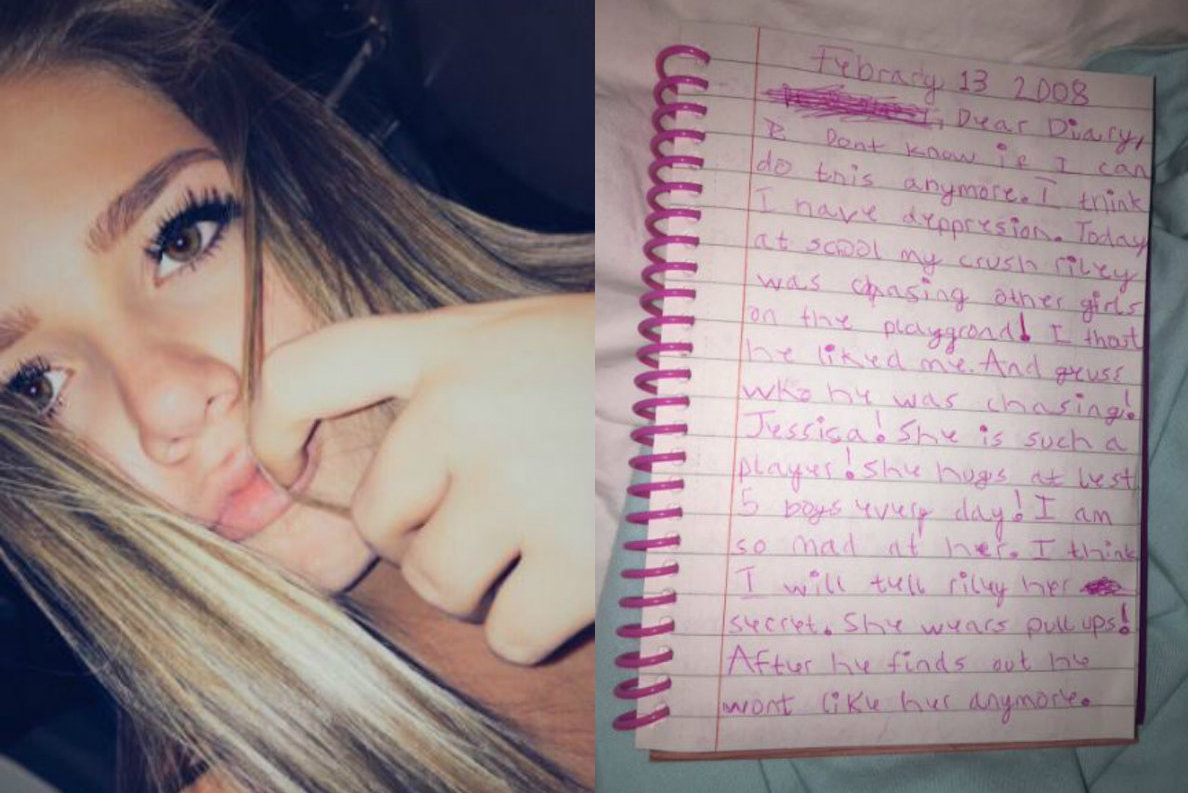 Febrary 13 2008
Dear Diary,
I Dont know if I can
do this anymore. I think
I have deppresion. Today
at scool my crush riley
was chasing other girls
on the playgrond! I thout
he liked me. And geuss
who he was chasing!
Jessica! She is such a
player! She hugs at lest
5 boys every day! I am
so mad at her. I think
I will tell riley her
secret. She wears pull ups!
After he finds out he
wont like her anymore.